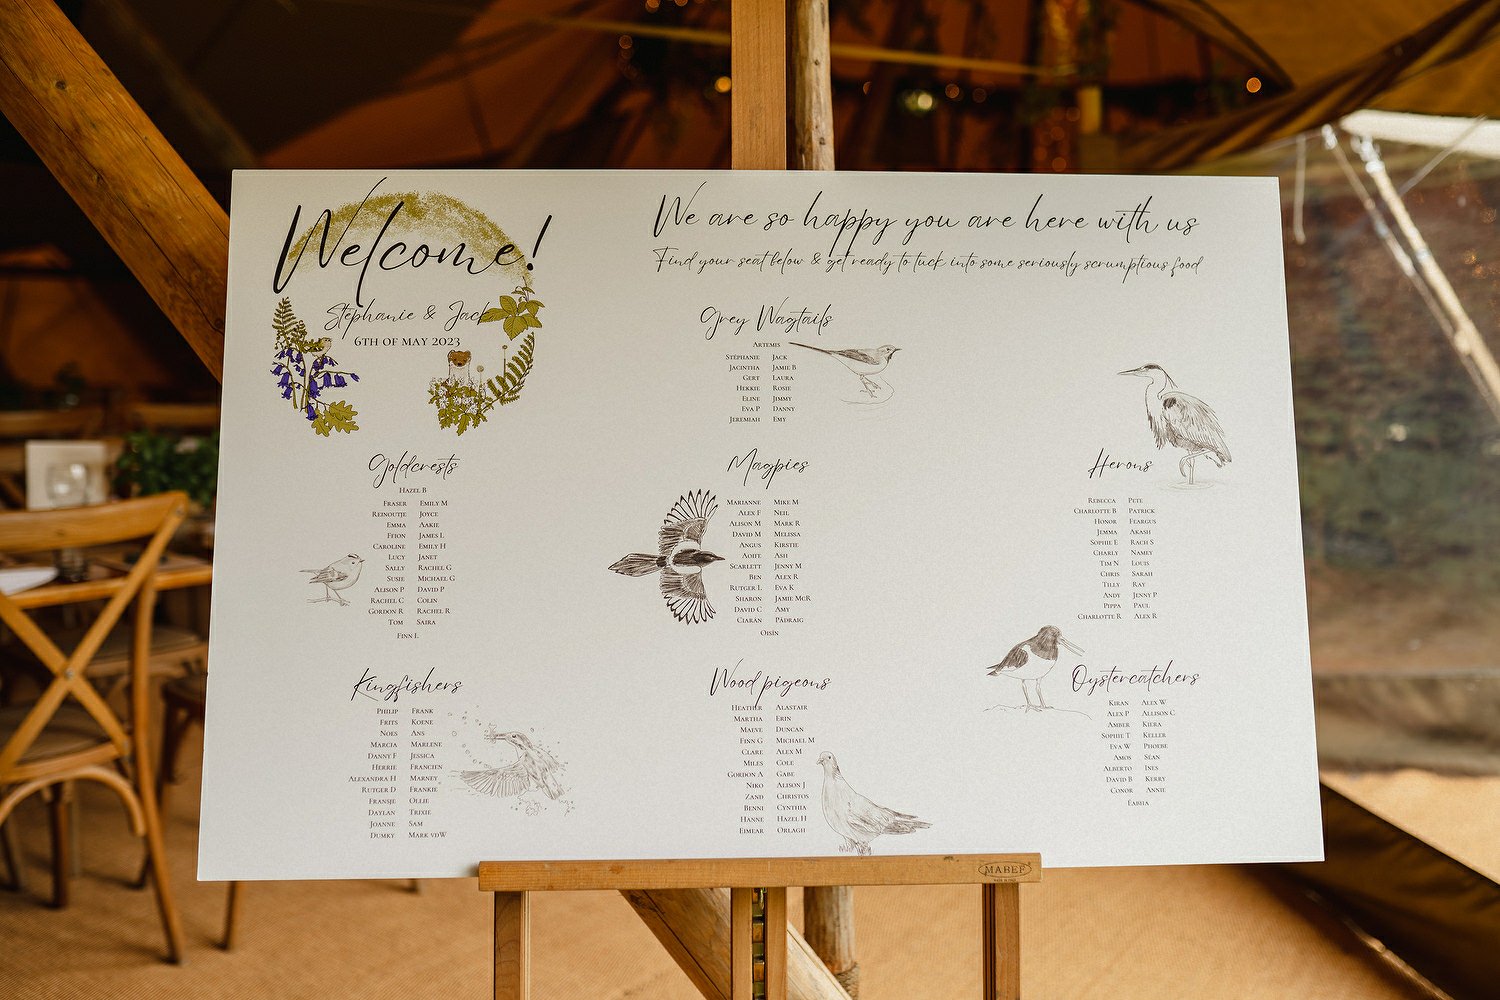 Welcome!
Stéphanie & Jack
6TH OF MAY 2023
We are so happy you are here with us
Find your seat below & get ready to tuck into some seriously scrumptious food
Grey Wagtails
ARTEMIS
STÉPHANIE JACK
JACINTHA JAMIE B
GERT LAURA
HEKKIE ROSIE
ELINE JIMMY
EVA P DANNY
JEREMIAH EMY
Goldcrests
HAZEL B
FRASER EMILY M
REINOUTJE JOYCE
EMMA AAKIE
FFION JAMES L
CAROLINE EMILY H
LUCY JANET
SALLY RACHEL G
SUSIE MICHAEL G
ALISON P DAVID P
RACHEL C COLIN
GORDON R RACHEL R
TOM SAIRA
FINN L
Magpies
MARIANNE MIKE M
ALEX F NEIL
ALISON M MARK R
DAVID M MELISSA
ANGUS KIRSTIE
AOIFE ASH
SCARLETT JENNY M
BEN ALEX R
RUTGER L EVA K
SHARON JAMIE MCR
DAVID C AMY
CIARÁN PÁDRAIG
OISÍN
Herons
REBECCA PETE
CHARLOTTE B PATRICK
HONOR FEARGUS
JEMMA AKASH
SOPHIE E RACH S
CHARLY NAMEY
TIM N LOUIS
CHRIS SARAH
TILLY RAY
ANDY JENNY P
PIPPA PAUL
CHARLOTTE R ALEX R
Kingfishers
PHILIP FRANK
FRITS KOENE
NOES ANS
MARCIA MARLENE
DANNY F JESSICA
HERRIE FRANCIEN
ALEXANDRA H MARNEY
RUTGER D FRANKIE
FRANSJE OLLIE
DAYLAN TRIXIE
JOANNE SAM
DUMKY MARK VDW
Wood pigeons
HEATHER ALASTAIR
MARTHA ERIN
MAEVE DUNCAN
FINN G MICHAEL M
CLARE ALEX M
MILES COLE
GORDON A GABE
NIKO ALISON J
ZAND CHRISTOS
BENNI CYNTHIA
HANNE HAZEL H
EIMEAR ORLAGH
Oystercatchers
KIRAN ALEX W
ALEX P ALLISON C
AMBER KIERA
SOPHIE T KELLER
EVA W PHOEBE
AMOS SEAN
ALBERTO INES
DAVID B KERRY
CONOR ANNIE
EABHA
MABEF